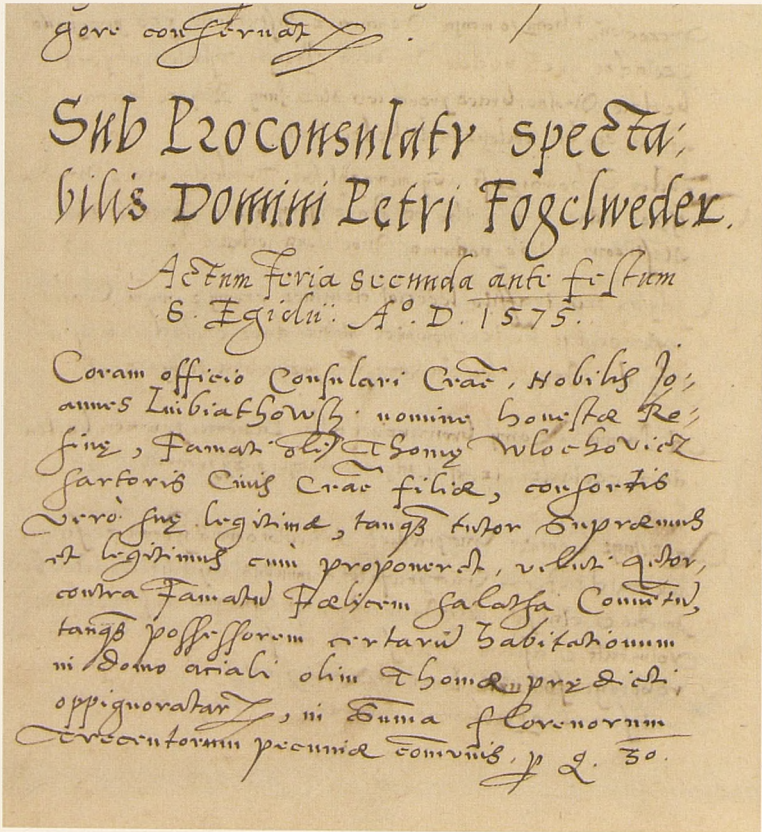 gore conservat
Sub Proconsulatu specta:
bilis Domini Petri Fogelweder.
Actum Feria secunda ante festum
S. Egidii: Aº. D. 1575.
Coram officio Consulari Crac̄e, Nobilis Jo:
annes nomine honestæ Re:
ginę, Famati olī Thomę Wlochovicz
sartoris Civis Crac̄e filiæ, consortis
verò suę legitimæ, tanq̄ tutor Supræmus
et legitimus cum proponeret, veluti Actor,
contra Famatū Fælicem Conuētū,
tanq̄ possessorem certarū habitationum
in domo aciali olim Thomæ prędicti,
oppignoratar, in Sum̄a florenorum
Trecentorum pecuniæ com̄unis, p Q. 30.